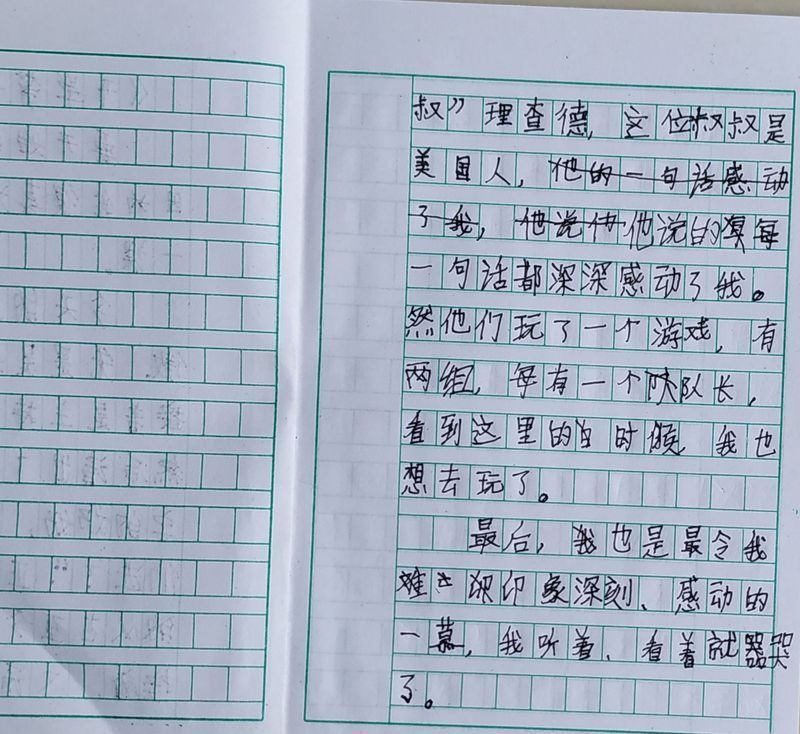 叔”理查德，这位叔叔是
美国人，他的一句话感动
了我，他说他他说的每
一句话都深深感动了我。
然他们玩了一个游戏，有
两组，每有一个队长，
看到这里的时候，我也
想去玩了。
最后，我也是最令我
难印象深刻、感动的
一幕，我听着、看着就哭
了。